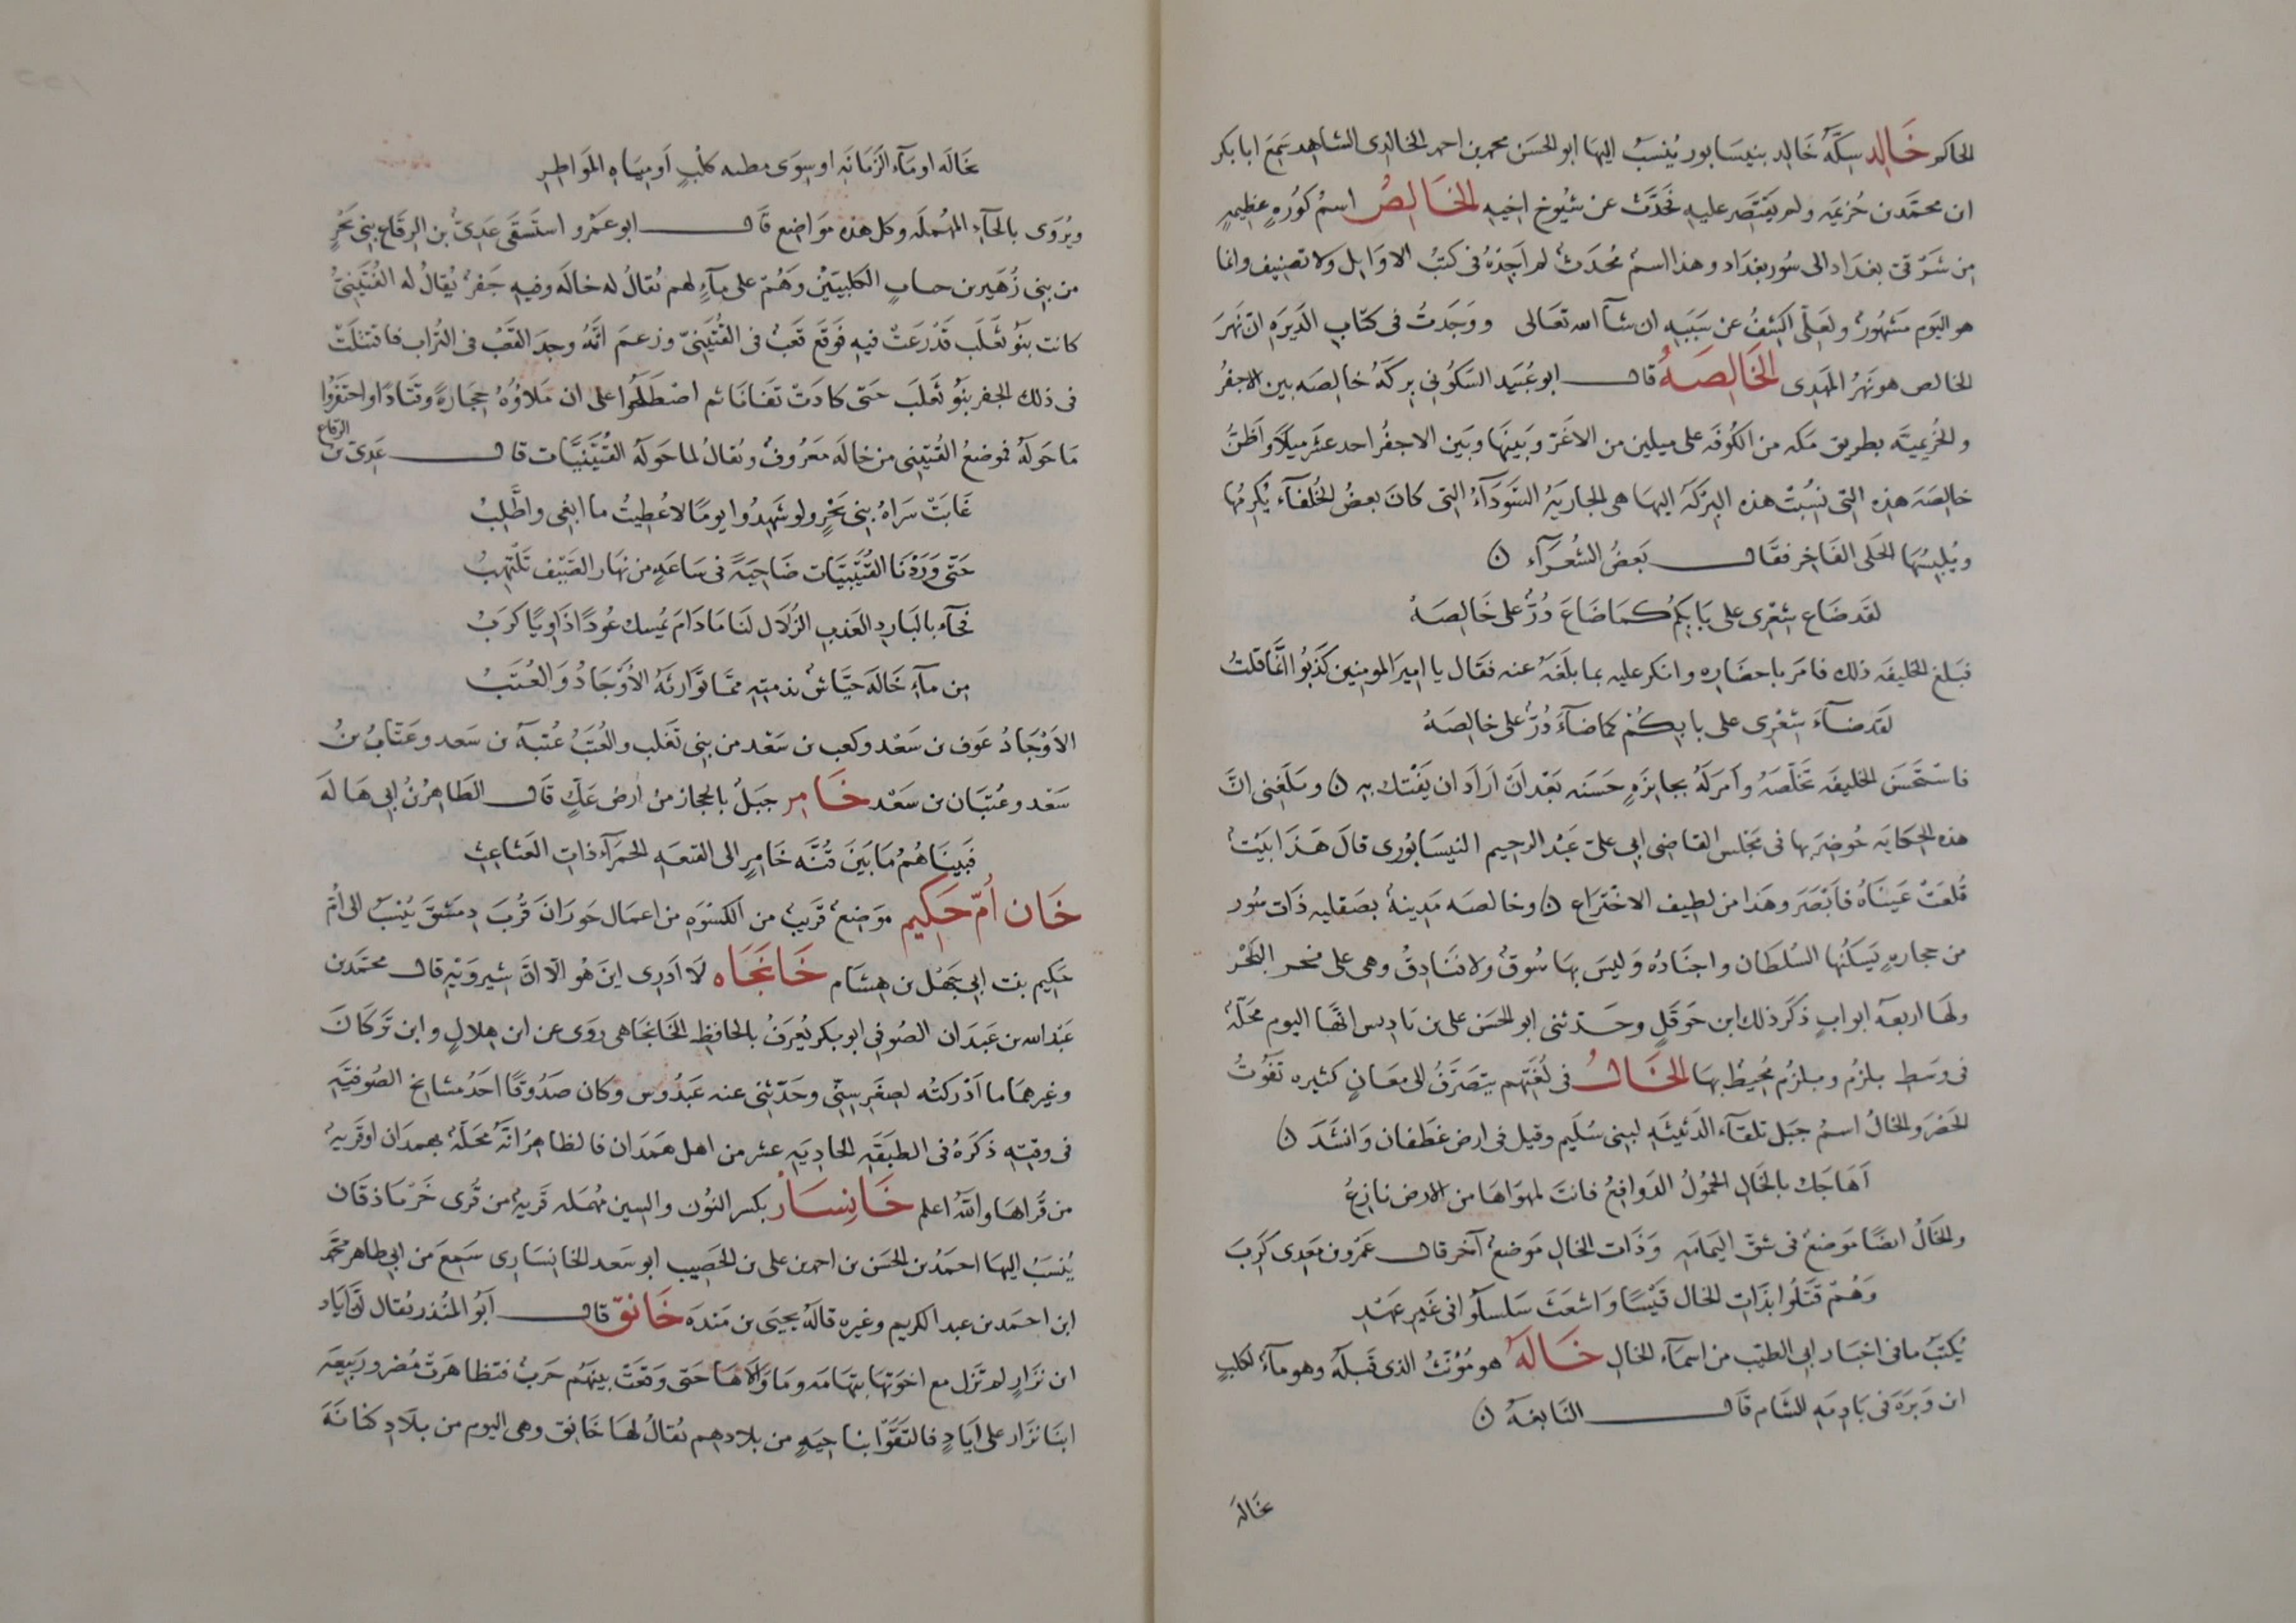 الحاكم خَالِد سِكَّةُ خَالِد بنيسَابور يُنسَبُ اليها ابو الحسَن محمد بن احمد الخالدى الشاهد سَمِعَ ابا بكر
ابن محمَّد بن خُزيمَه ولم يَقتَصَر عليهِ فحَدَّثَ عن شيُوخ اخيهِ الخَالِصُ اسمُ كُورُةٍ عظيمةٍ
من شَرقىّ بغدَاد الى سُور بغدَاد وهذا اسمٌ مُحدَثٌ لم اَجِدْهُ فى كتبُ الاوَايل ولا تصنيف وانما
هو اليَوم مَشهُورٌ ولَعَلّى اكشِفُ عن سَبَبهِ ان شآ الله تعَالى ووَجَدتُ فى كتَابِ الدَيرَهِ انّ نهَرَ
الخالص هو نهَرُ المهَدِى الخَالِصَهُ قال ابو عُبَيد السَكُونى بركَهُ خالِصَه بين الاجفُر
والخُزيميّه بطريق مَكه من الكُوفَه على ميلين من الاغَرّ وبَينهَا وبَين الاجفُر احد عشَر ميلاً واَظنُّ
خالِصَهَ هذِهِ التِى نسُبتْ هذه البِرْكَهُ اليهَا هى الجَاريَهُ السَودَآءُ التِى كانَ بعضُ الخُلفَآء يُكرِمُها
ويُلبِسُهَا الحَلى الفَاخِر فقَال بَعضُ الشُعرَآء ۞
لقَد ضَاعَ شِعْرِى على بَابِكمُ كمَا ضَاعَ دُرٌّ على خَالِصَهْ
فبَلغ الخليفَه ذلك فامَر باحضَارِه وانكر عليهِ بما بلَغَهُ عنه فقَال يا اميرَ المومنِين كَذَبُوا انّما قلتُ
لقد ضآءَ شِعْرِى على بابِكُمْ كما ضآءَ دُرٌّ على خالِصَهْ
فاسْتحَسَن الخليفَه تَخَلّصَهُ وأمَر لَهُ بجايزَهٍ حَسَنه بَعْد اَنْ اَرَادَ ان يَفتْك بِهِ ۞ وبَلَغنِى انَّ
هذه الحِكايَه حُوضِرَ بها فى مَجْلس القاضِى ابى علىّ عَبْد الرحيم النيسَابُورى قالَ هَذَا بَيْتٌ
قُلعَتْ عَينَاهُ فاَبْصَرَ وهَذا من لطيف الاخْتَرَاع ۞ وخالصَه مَدِينهٌ بصَقليه ذَات سُور
من حجارهٍ يَسكنُها السُلطان واجنَادُه وَليسَ بهَا سُوقٌ ولا فنَادِقٌ وهى على نحر البَحْر
ولهَا اربعهُ ابوابٍ ذكَر ذلك ابن حَوقَلٍ وحَدّثنى ابو الحسَن على بن بَادِيس انّهَا اليوم محَلّهٌ
فى وسَطِ بلزُم وبلزُم مُحيطٌ بهَا الخَالُ فى لُغَتِهم يتَصَرَّفُ الى معَانٍ كثيره تَفُوتُ
الحَصْر والخالُ اسمُ جبَل تلقَآءَ الدَثينهِ لبِنى سُليَم وقيل فى ارض غطَفان وَانشَدَ ۞
اَهَاجَك بالخَالِ الحمُولُ الدَوافِعُ فانتَ لمهوَاهَا من الارض نازِعُ
والخَالُ ايضًا مَوضِعٌ فى شقّ اليمَامَهِ وَذَات الخالِ مَوضعٌ آخر قال عَمْرُو بن مَعْدِى كَرِبَ
وَهُمْ قتَلُوا بذَاتِ الخال قَيْسًا وَاشعَثَ سَلسلُوا فى غيَرِ عهَدِ
يُكتَب ما فى اخبَار ابى الطيّب من اسمآءَ الخالِ خَالَهُ هو مُؤنَثُ الذى قَبلَهُ وهو مآءٌ لكلبِ
ابن وَبَرَهَ فى بَادِيَهِ الشَام قال النَابغهُ ۞
بخَالَهَ
بخَالَه او مَآء الذَنَابَهِ او سِوَى مظنه كلْبٍ اَو مِيَاهِ المَوَاطِرِ
ويُرْوَى بالحآءِ المهُملَه وكل هذه موَاضِع قَال ابو عَمْرو استَسقَى عَدِىُّ بن الرِقَاع بنِى بَحْرٍ
من بنِى زُهَير بن جنابٍ الكلبيّينْ وَهُمْ على مآءٍ لهم يُقالُ له خالَه وفيهِ جَفرٌ يُقالُ له القُنَيْنِىُّ
كانت بَنُو ثعَلَب قَدْ رعَتْ فيهِ فوَقَع قَعْبٌ فى القُنَيْنِىّ وزعمَ اَنّهُ وجدَ القَعْبُ فى التُراب فاقتتَلَتْ
فى ذلك الجفر بَنُو ثَعلَب حَتى كادَتْ تَفانَا ثم اصْطَلَحُوا على ان مَلاؤُهُ حِجَارةً وقتَادًا واحتَفَرُوا
مَا حَولَهُ فموضعُ القُنَيْنِى من خالَه مَعرُوفٌ ويُقالُ لما حَولَهُ القُنَيْنيَّات قال عَدِىّ بن الرقاع
غَابَتْ سَرَاهُ بنِى بَحْرٍ ولو شهِدُوا يومًا لاعُطيتُ ما ابغى واَطَّلِبُ
حَتى وَرَدْنَا القُنَيْنيَّاتِ ضَاحِيَهً فى سَاعَهٍ من نهَار الصَيْف تَلْتهبُ
فجآءَ بالبَاردِ العَذبِ الزُلَال لنَا مَا دَامَ يُمسِك عُودًا ذَاوِيًا كَرَبُ
مِن مآءِ خَالَهَ جيَّاشٌ بذمتِهِ ممَّا توَّارثَهُ الأوْحَادُ وَالعُتَبُ
الاَوْحَادُ عَوف بن سَعْد وكعب بن سَعْد من بنِى تَغلَب والعُتَبُ عُتبَهُ بن سَعد وعَتّابُ بنُ
سَعْد وعُتبَان بن سَعْد خَامِر جبَلٌ بالحجاز من ارض عَكٍّ قال الطَاهِرُ بنُ ابى هَالَه
فبَينَاهُمُ مَا بَينَ قُنَّه خَامِرٍ الى القيعَهِ الحمَرآءِ ذاتِ العَثاعِثِ
خَان أُمّ حَكِيم موَضِعٌ قَريبٌ من الكسْوَهِ من اعمَال حَورَانَ قُربَ دِمشَقَ يُنسَبُ الى امُّ
حَكيم بنت ابى جَهْل بن هِشَام خَانْجَاه لَا اَدرِى اينَ هُوَ الّا انَّ شِيرويَهِ قال محمَّد بن
عَبْد الله بن عَبْدَان الصُوفى ابو بكر يُعرَفُ بالحافظِ الخَانجَاهى روَى عن ابن هِلالٍ وابن تُركَانَ
وغيرهمَا ما اَدْركتُه لصِغَرِ سِنّى وحَدّثنِى عنه عَبْدُوس وكان صَدُوقًا احَدُ مشايخ الصُوفيَهِ
فى وقتِهِ ذكَرَهُ فى الطبَقَهِ الحادِيَهِ عشر من اهل هَمَدان فالظاهِرُ انَّهُ محَلَهٌ بهمدَان او قَريهٌ
من قُراهَا واَللّهُ اعلم خَانِسَار بكسر النوُن والسِين مُهمَله قريهٌ من قُرى جَرْبَاذقَان
يُنسَبُ اليهَا احمَدُ بن الحسَن بن احمد بن على بن الخَصِيب ابو سَعد الخانسَارِى سَمِعَ من ابى طاهر محمَّد
ابن احمَد بن عبد الكريم وغيره قالَهُ يحيَى بن مَنْدَه خَانق قال اَبُو المُنذر يُقال اَنَّ اِيَاد
ابن نزارٍ لم تَزل مع اخوَتِها بتهَامَه ومَا وَالَاهَا حَتى وقعَتْ بينهَم حَربٌ فتظاهَرَتْ مُضر ورَبيعَه
ابنَا نزَار على ايَادٍ فالتَقَوَّا بناحيَهٍ من بلادهم يُقالُ لهَا خَانق وهى اليوم من بلَادِ كنانَهَ